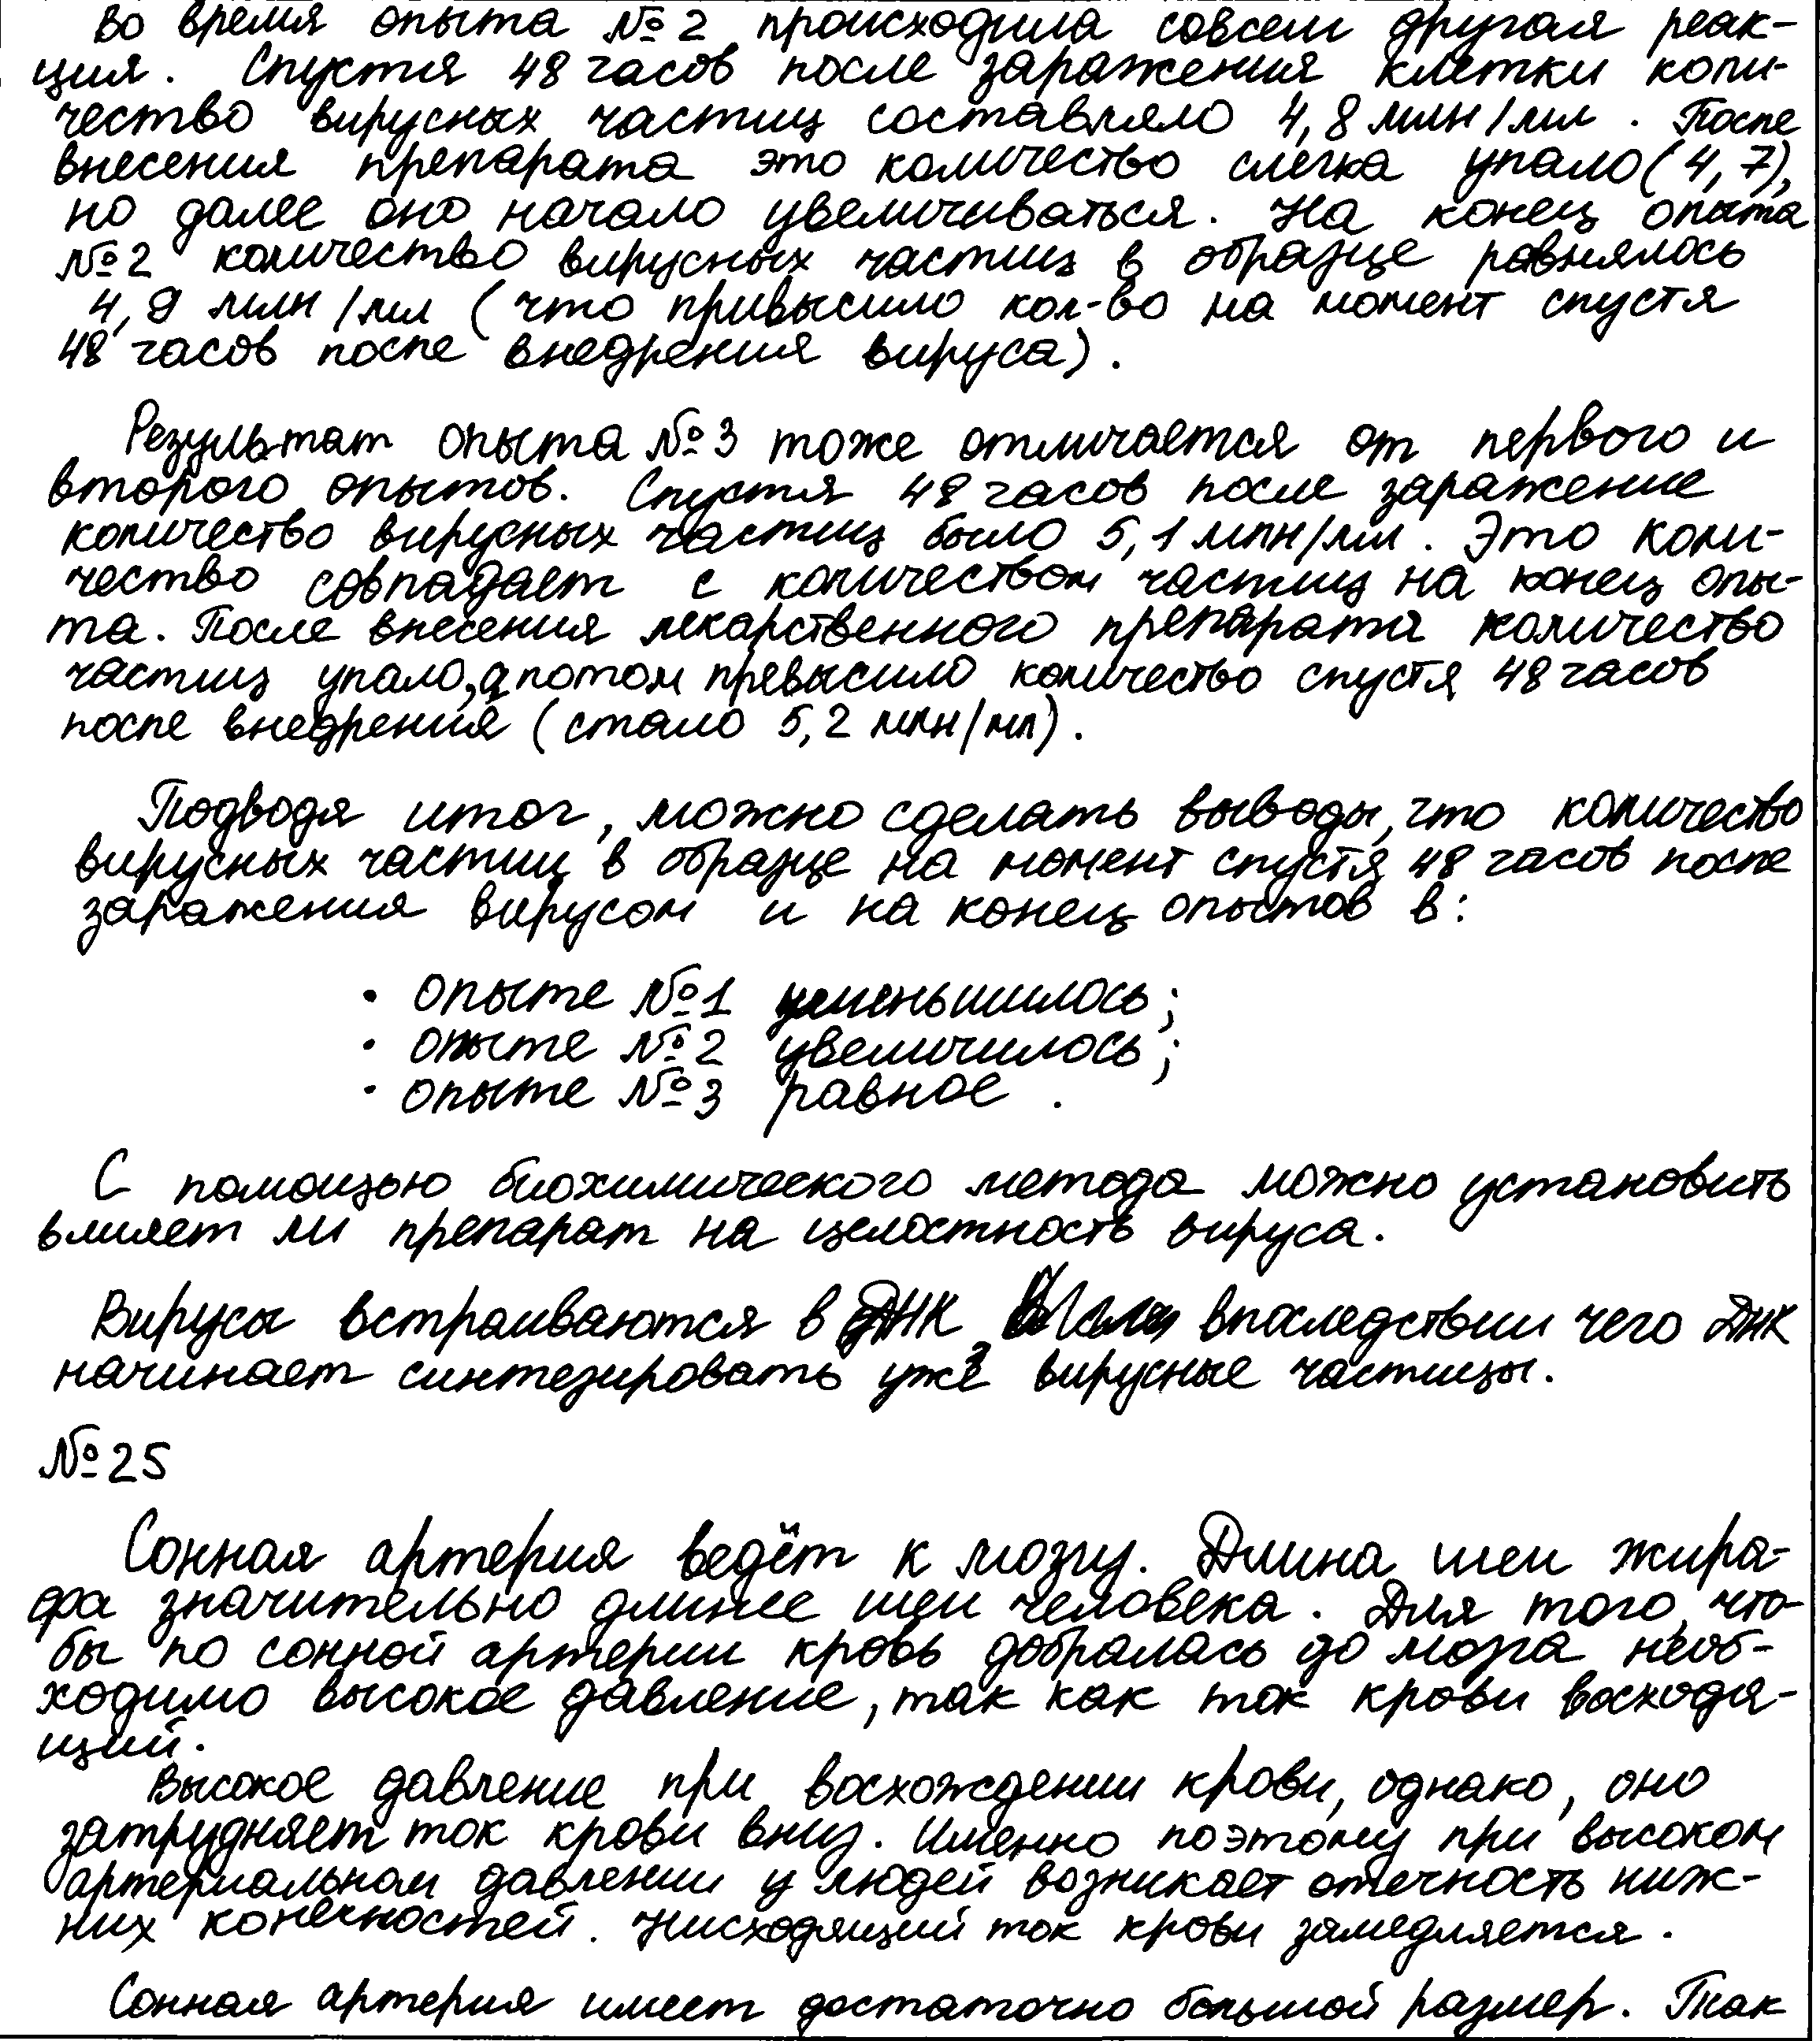 Во время опыта №2 происходила совсем другая реак-
ция. Спустя 48 часов после заражения клетки коли-
чество вирусных частиц составляло 4,8 млн/мл. После
внесения препарата это количество слегка упало (4,7),
но далее оно начало увеличиваться. На конец опыта
№2 количество вирусных частиц в образце равнялось
4,9 млн/мл (что привысило кол-во на момент спустя
48 часов после внедрения вируса).
Результат опыта №3 тоже отличается от первого и
второго опытов. Спустя 48 часов после заражение
количество вирусных частиц было 5,1 млн/мл. Это коли-
чество совпадает с количеством частиц на конец опы-
та. После внесения лекарственного препарата количество
частиц упало, а потом превысило количество спустя 48 часов
после внедрения (стало 5,2 млн/мл).
Подводя итог, можно сделать выводы, что количество
вирусных частиц в образце на момент спустя 48 часов после
заражения вирусом и на конец опытов в:
• опыте №1 уменьшилось;
• опыте №2 увеличилось;
• опыте №3 равное.
С помощью биохимического метода можно установить
влияет ли препарат на целостность вируса.
Вирусы встраиваются в ДНК, впоследствии чего ДНК
начинает синтезировать уже вирусные частицы.
№25
Сонная артерия ведёт к мозгу. Длина шеи жира-
фа значительно длинее шеи человека. Для того, что-
бы по сонной артерии кровь добралась до мозга необ-
ходимо высокое давление, так как ток крови восходя-
щий.
Высокое давление при восхождении крови, однако, оно
затрудняет ток крови вниз. Именно поэтому при высоком
артериальном давлении у людей возникает отечность ниж-
них конечностей. Нисходящий ток крови замедляется.
Сонная артерия имеет достаточно большой размер. Так